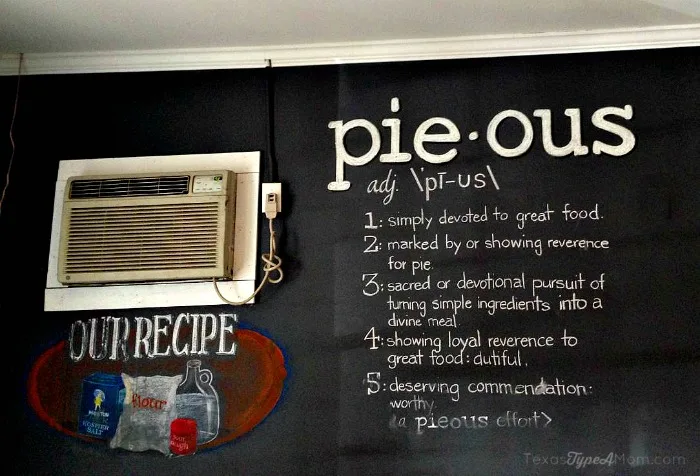 pie·ous
adj. \'pī-us\
1: simply devoted to great food.
2: marked by or showing reverence
for pie.
3: sacred or devotional pursuit of
turning simple ingredients into a
divine meal.
4: showing loyal reverence to
great food: dutiful.
5: deserving commendation:
worthy
<a pieous effort>
OUR RECIPE
flour
SALT
TexasTypeAMom.com